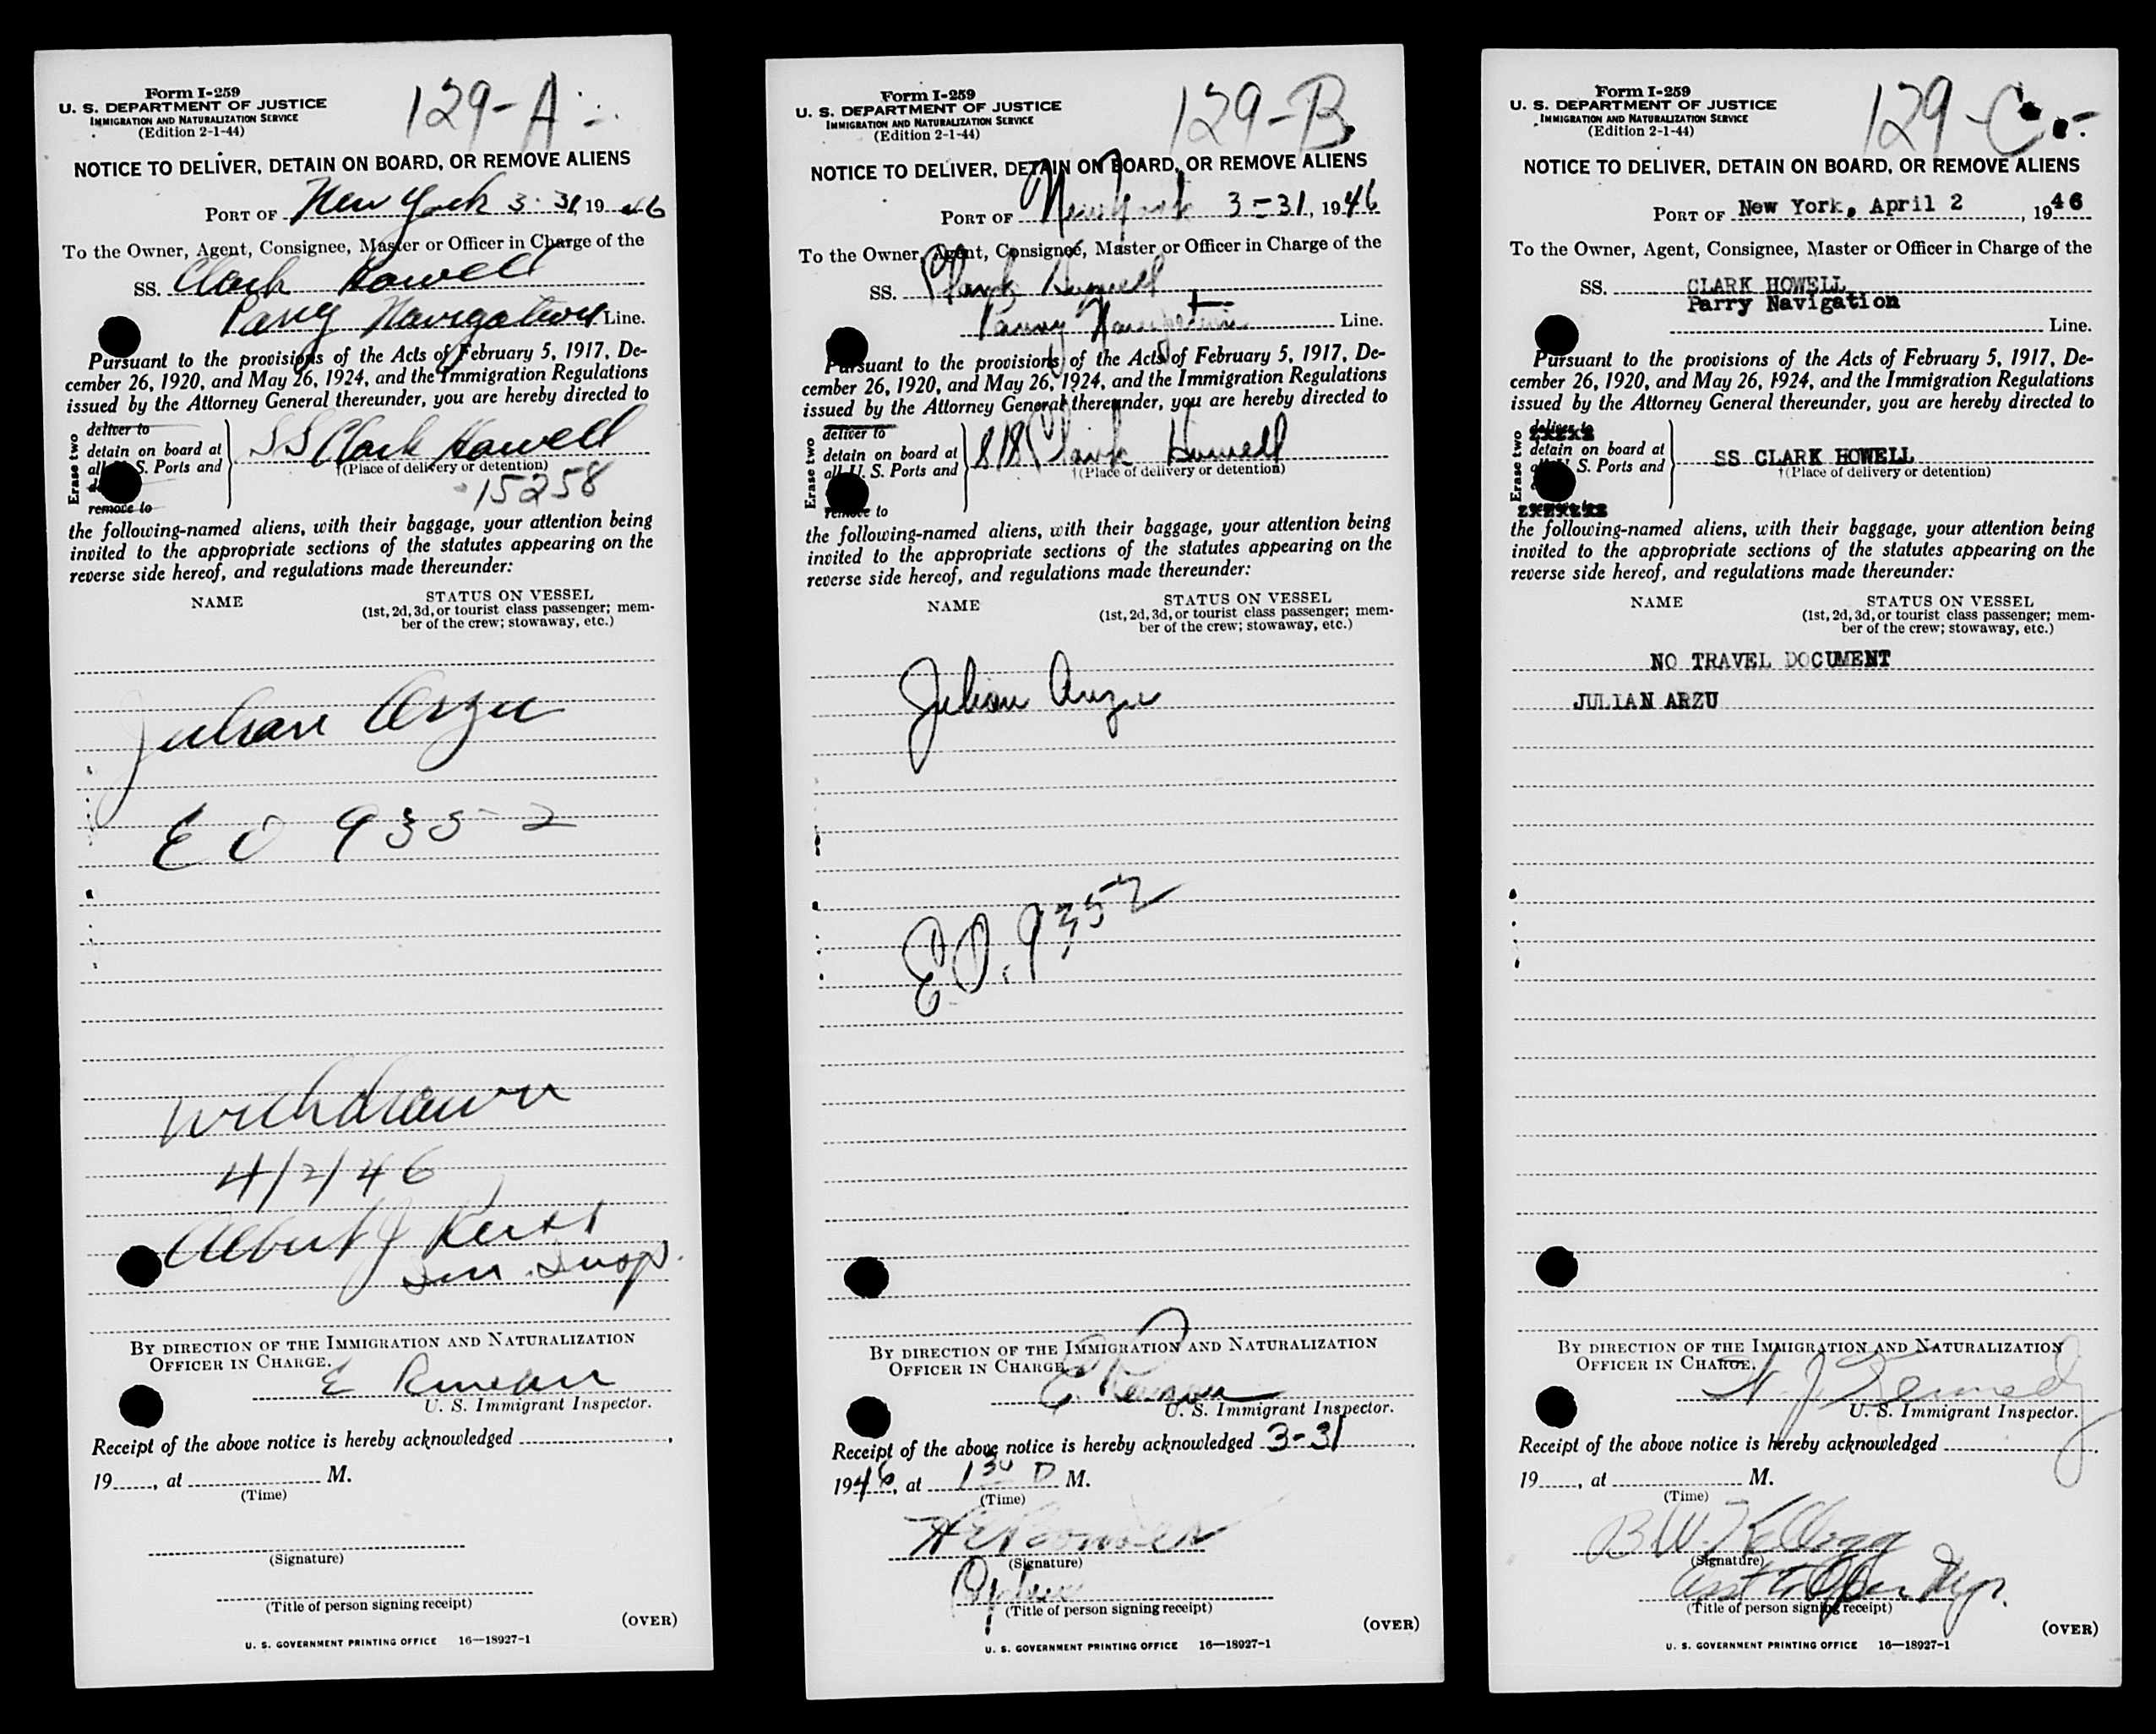 Form I-259
U. S. DEPARTMENT OF JUSTICE
IMMIGRATION AND NATURALIZATION SERVICE
(Edition 2-1-44)
129-A
NOTICE TO DELIVER, DETAIN ON BOARD, OR REMOVE ALIENS
PORT OF New York 3-31, 1946
To the Owner, Agent, Consignee, Master or Officer in Charge of the
SS. Clark Howell
Parry Navigation Line.
Pursuant to the provisions of the Acts of February 5, 1917, De-
cember 26, 1920, and May 26, 1924, and the Immigration Regulations
issued by the Attorney General thereunder, you are hereby directed to
Erase two
deliver to
detain on board at
all U. S. Ports and
SS Clark Howell
†(Place of delivery or detention)
15258
remove to
the following-named aliens, with their baggage, your attention being
invited to the appropriate sections of the statutes appearing on the
reverse side hereof, and regulations made thereunder:
NAME
STATUS ON VESSEL
(1st, 2d, 3d, or tourist class passenger; mem-
ber of the crew; stowaway, etc.)
Julian Arzu
EO 9352
withdrawn
4/2/46
Albert J
Imm. Insp.
BY DIRECTION OF THE IMMIGRATION AND NATURALIZATION
OFFICER IN CHARGE.
E
U. S. Immigrant Inspector.
Receipt of the above notice is hereby acknowledged
19, at M.
(Time)
(Signature)
(Title of person signing receipt)
(OVER)
U. S. GOVERNMENT PRINTING OFFICE 16—18927-1
Form I-259
U. S. DEPARTMENT OF JUSTICE
IMMIGRATION AND NATURALIZATION SERVICE
(Edition 2-1-44)
129-B
NOTICE TO DELIVER, DETAIN ON BOARD, OR REMOVE ALIENS
PORT OF New York 3-31, 1946
To the Owner, Agent, Consignee, Master or Officer in Charge of the
SS. Clark Howell
Parry Navigation Line.
Pursuant to the provisions of the Acts of February 5, 1917, De-
cember 26, 1920, and May 26, 1924, and the Immigration Regulations
issued by the Attorney General thereunder, you are hereby directed to
Erase two
deliver to
detain on board at
all U. S. Ports and
S/S Clark Howell
†(Place of delivery or detention)
remove to
the following-named aliens, with their baggage, your attention being
invited to the appropriate sections of the statutes appearing on the
reverse side hereof, and regulations made thereunder:
NAME
STATUS ON VESSEL
(1st, 2d, 3d, or tourist class passenger; mem-
ber of the crew; stowaway, etc.)
Julian Arzu
E.O. 9352
BY DIRECTION OF THE IMMIGRATION AND NATURALIZATION
OFFICER IN CHARGE.
E.
U. S. Immigrant Inspector.
Receipt of the above notice is hereby acknowledged 3-31
1946, at 1 30 P M.
(Time)
(Signature)
(Title of person signing receipt)
(OVER)
U. S. GOVERNMENT PRINTING OFFICE 16—18927-1
Form I-259
U. S. DEPARTMENT OF JUSTICE
IMMIGRATION AND NATURALIZATION SERVICE
(Edition 2-1-44)
129-C
NOTICE TO DELIVER, DETAIN ON BOARD, OR REMOVE ALIENS
PORT OF New York, April 2, 1946
To the Owner, Agent, Consignee, Master or Officer in Charge of the
SS. CLARK HOWELL
Parry Navigation
Line.
Pursuant to the provisions of the Acts of February 5, 1917, De-
cember 26, 1920, and May 26, 1924, and the Immigration Regulations
issued by the Attorney General thereunder, you are hereby directed to
Erase two
deliver to
detain on board at
all U. S. Ports and
SS CLARK HOWELL
†(Place of delivery or detention)
the following-named aliens, with their baggage, your attention being
invited to the appropriate sections of the statutes appearing on the
reverse side hereof, and regulations made thereunder:
NAME
STATUS ON VESSEL
(1st, 2d, 3d, or tourist class passenger; mem-
ber of the crew; stowaway, etc.)
NO TRAVEL DOCUMENT
JULIAN ARZU
BY DIRECTION OF THE IMMIGRATION AND NATURALIZATION
OFFICER IN CHARGE.
J. Kennedy
U. S. Immigrant Inspector.
Receipt of the above notice is hereby acknowledged
19, at M.
(Time)
B W. Kellogg
(Signature)
Asst to Oper Mgr.
(Title of person signing receipt)
(OVER)
U. S. GOVERNMENT PRINTING OFFICE 16—18927-1